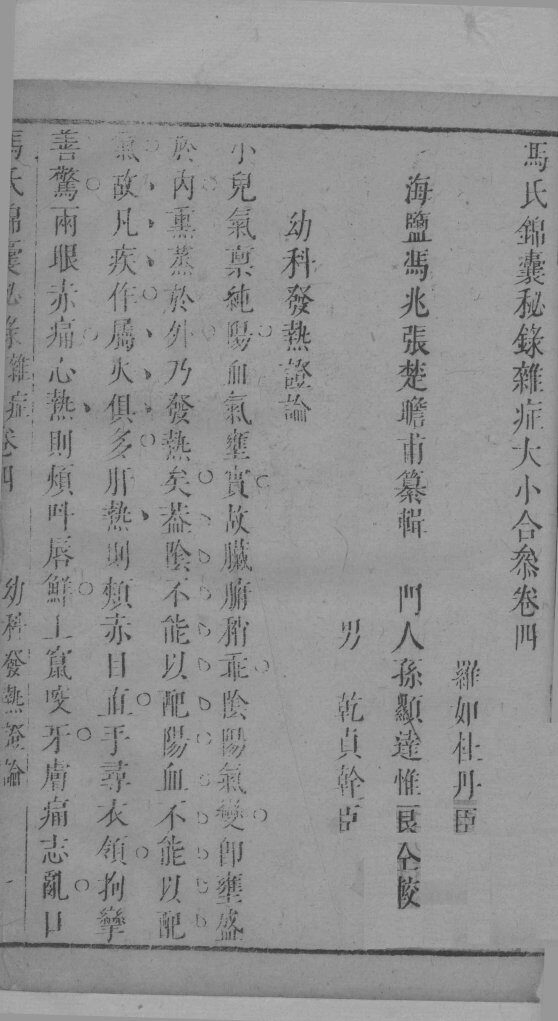 馮氏錦囊秘錄雜症大小合參卷四
羅如桂丹臣
海鹽馮兆張楚瞻甫纂輯 門人孫顯達惟良仝校
男 乾貞幹臣
幼科發熱證論
小兒氣禀純陽血氣壅實故臟腑稍乖陰陽氣變卽壅盛
於內熏蒸於外乃發熱矣葢陰不能以配陽血不能以配
氣故凡疾作屬火俱多肝熱則頰赤目直手尋衣領拘攣
善驚兩眼赤痛心熱則煩叫唇鮮上竄咬牙膚痛志亂口
馮氏錦囊秘錄雜症卷四 幼科發熱證論 一